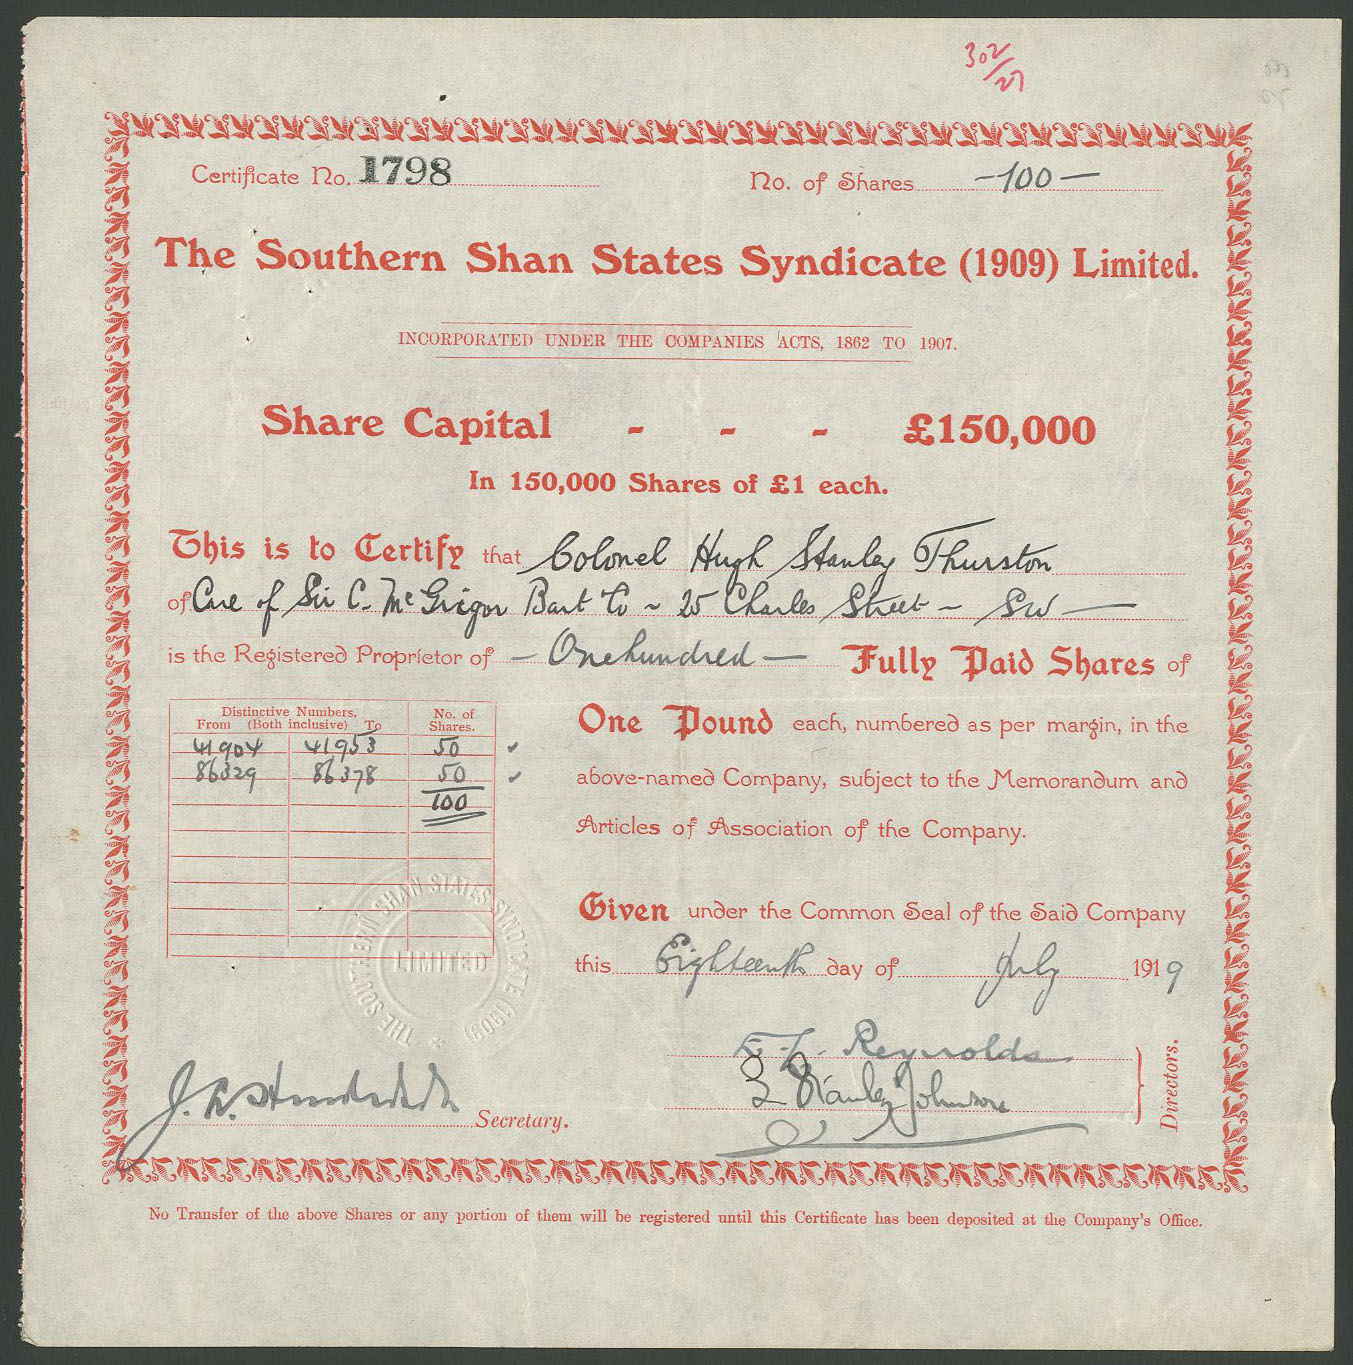 302/27
Certificate No. 1798 No. of Shares -100-
The Southern Shan States Syndicate (1909) Limited.
INCORPORATED UNDER THE COMPANIES ACTS, 1862 TO 1907.
Share Capital - - - £150,000
In 150,000 Shares of £1 each.
This is to Certify that Colonel Hugh Stanley Thurston
of Care of Sir C. McGrigor Bart Co ~ 25 Charles Street ~ SW
is the Registered Proprietor of - One hundred - Fully Paid Shares of
Distinctive Numbers. No. of
From (Both inclusive) To Shares.
41904 41953 50
86329 86378 50
100
One Pound each, numbered as per margin, in the
above-named Company, subject to the Memorandum and
Articles of Association of the Company.
THE SOUTHERN SHAN STATES SYNDICATE (1909)
LIMITED
Given under the Common Seal of the Said Company
this Eighteenth day of July 1919
Reynolds
Stanley Johnson
Directors.
J. Secretary.
No Transfer of the above Shares or any portion of them will be registered until this Certificate has been deposited at the Company's Office.